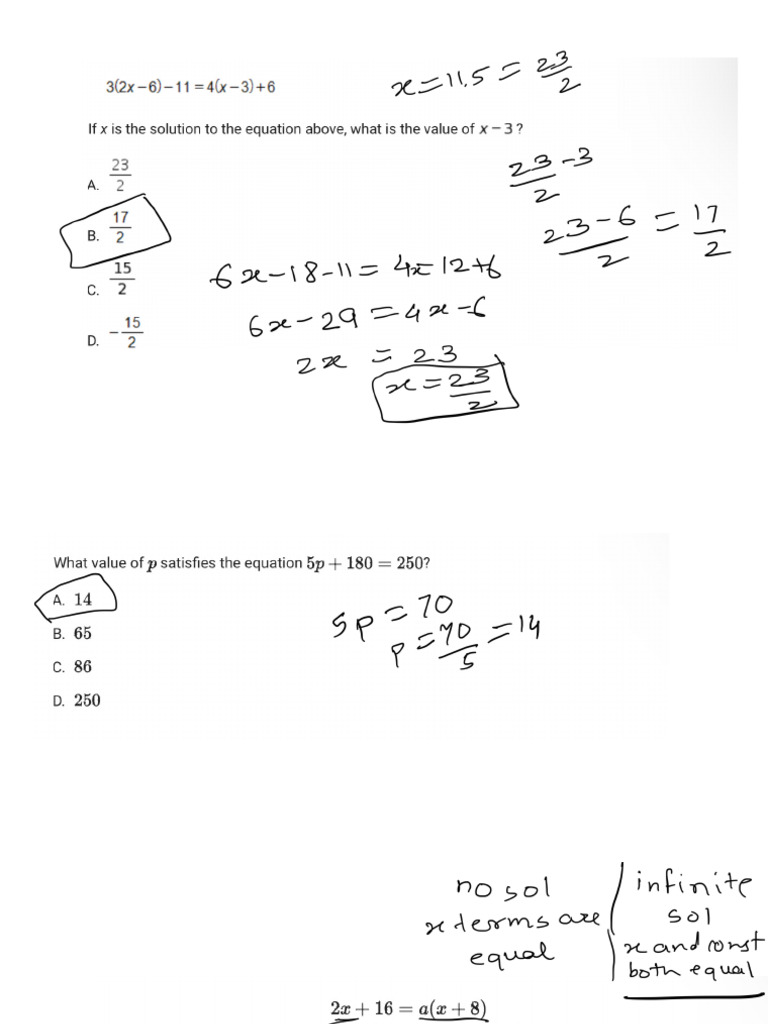 3(2x – 6) – 11 = 4(x – 3) + 6
x = 11.5 = 23/2
If x is the solution to the equation above, what is the value of x – 3 ?
23/2 - 3
A. 23/2
23 - 6/2 = 17/2
B. 17/2
6x - 18 - 11 = 4x - 12 + 6
C. 15/2
6x - 29 = 4x - 6
D. -15/2
2x = 23
x = 23/2
What value of p satisfies the equation 5p + 180 = 250?
A. 14
5p = 70
B. 65
p = 70/5 = 14
C. 86
D. 250
no sol
x terms are
equal
infinite
sol
x and const
both equal
2x + 16 = a(x + 8)